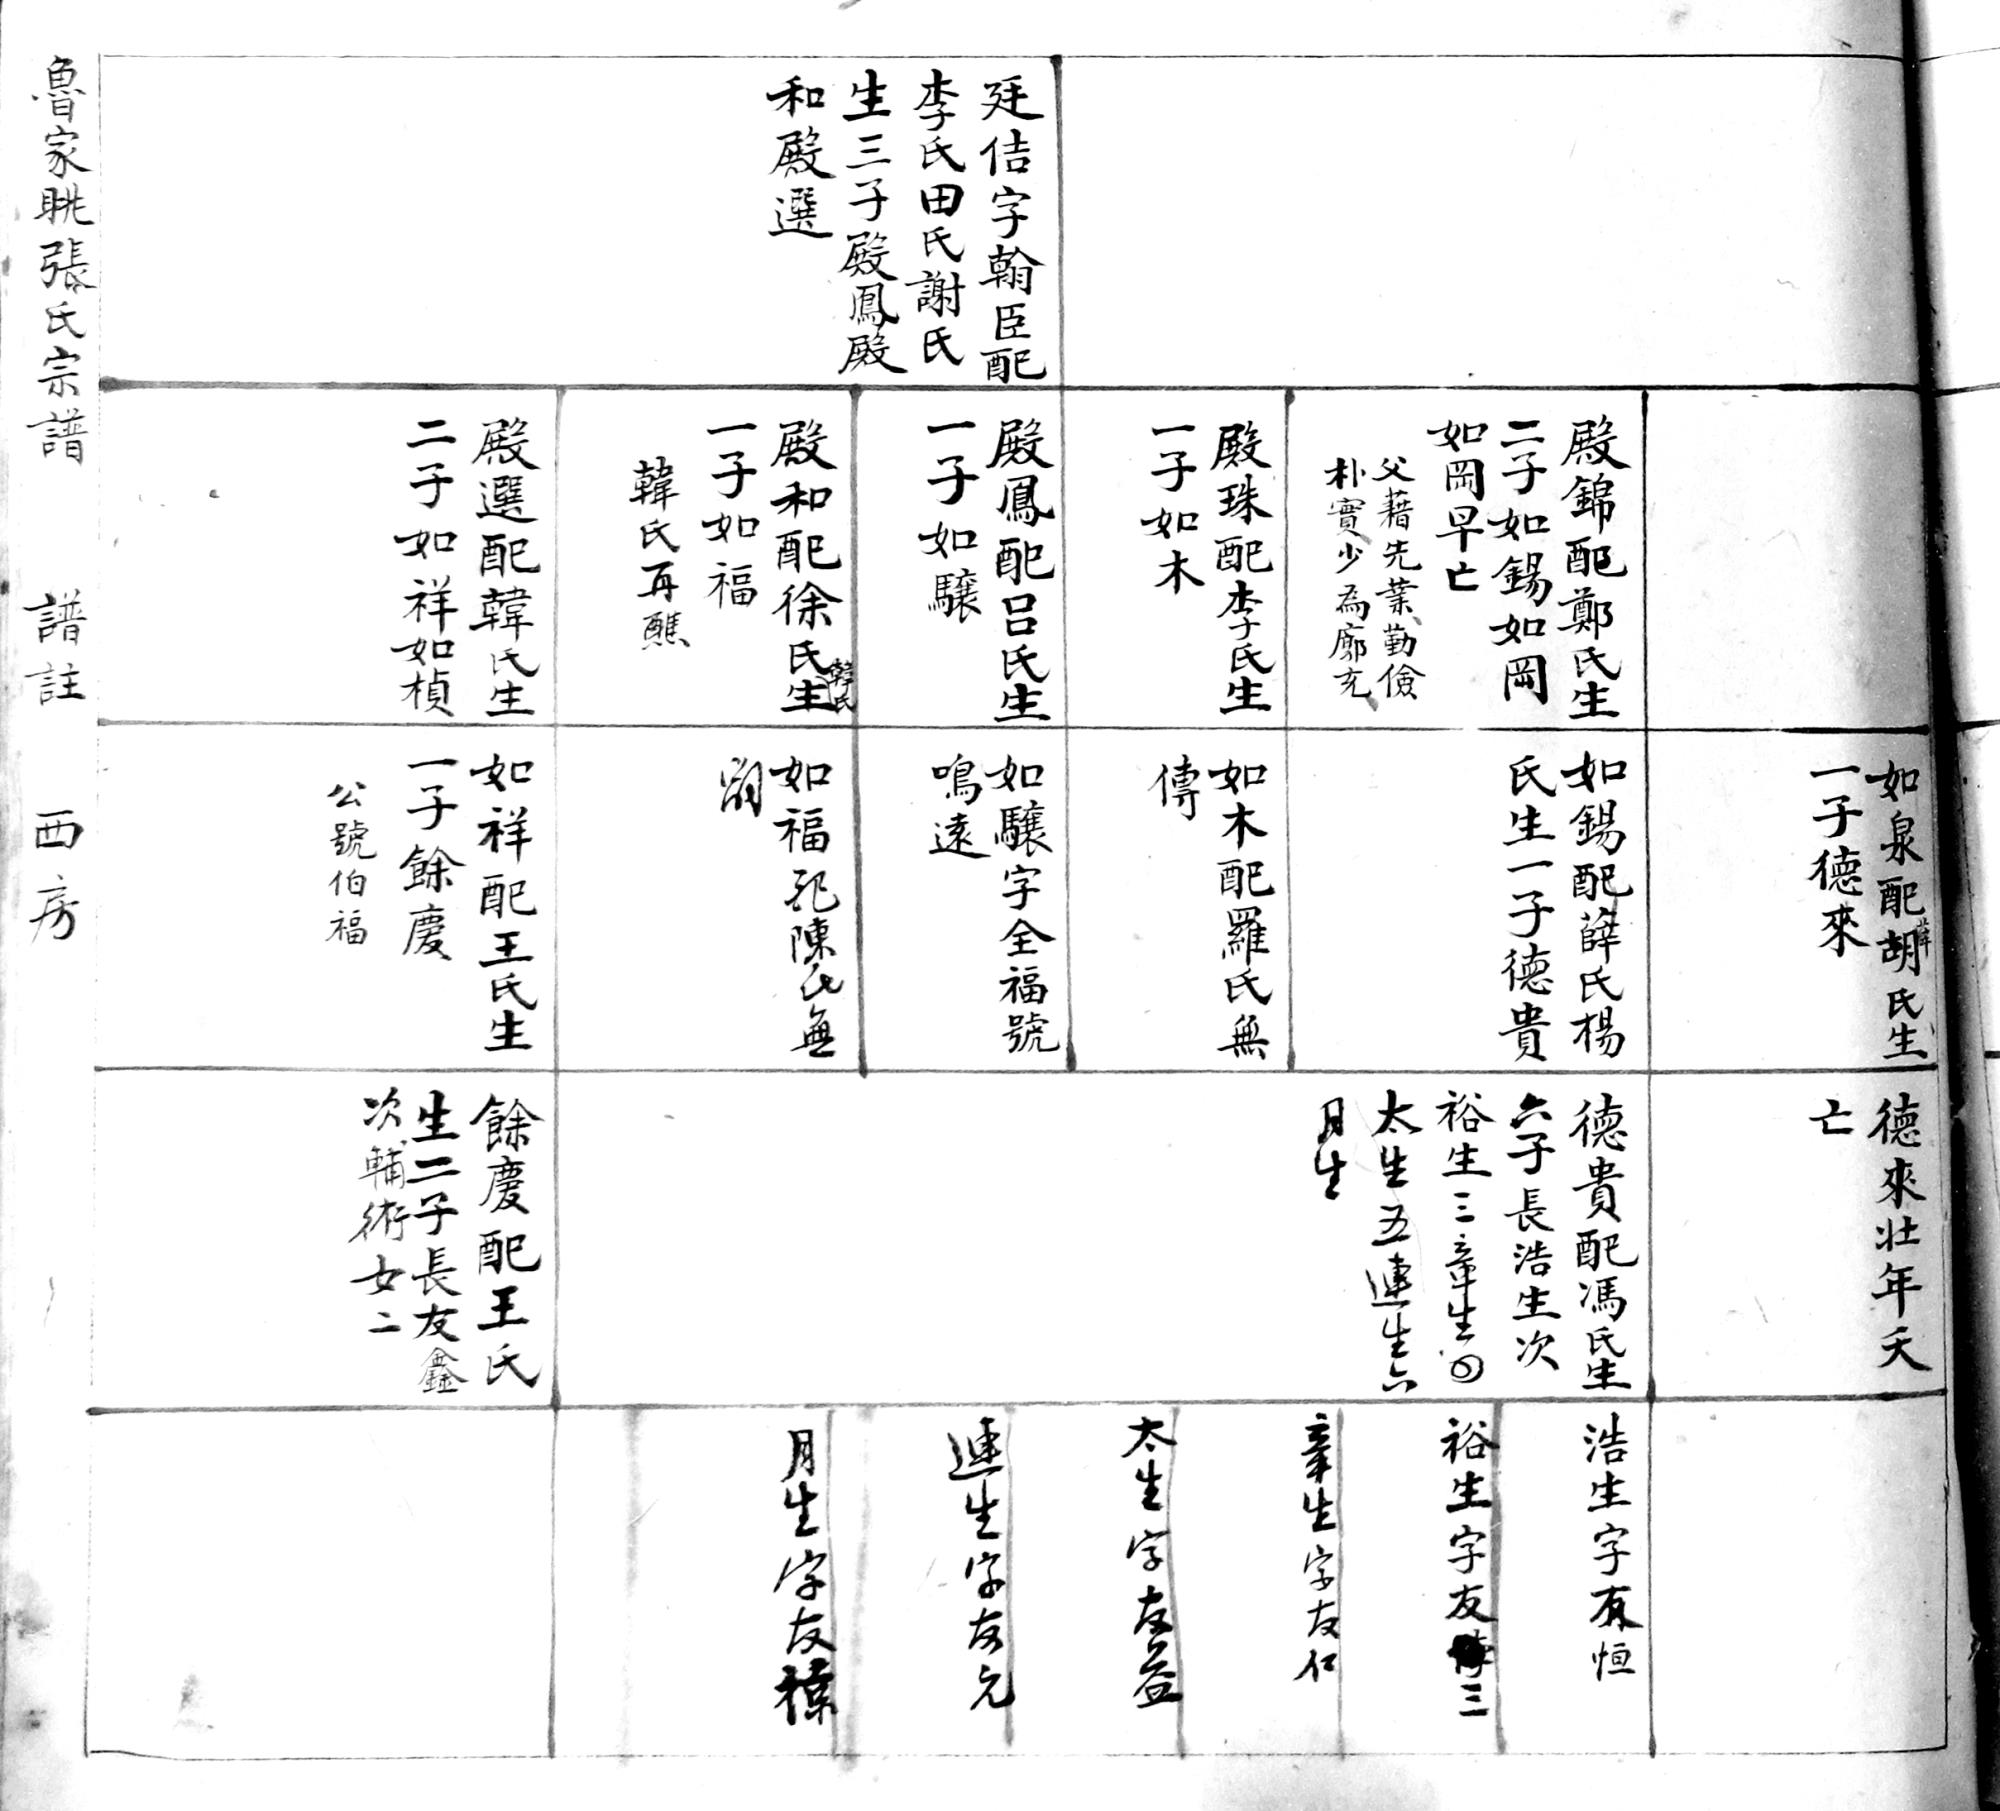 廷佶字翰臣配
李氏田氏謝氏
生三子殿鳳殿
和殿選
殿錦配鄭氏生
二子如錫如岡
如岡早亡
父藉先業勤儉
朴實少為廓充
殿珠配李氏生
一子如木
殿鳳配呂氏生
一子如驤
殿和配徐氏韓氏生
一子如福
韓氏再醮
殿選配韓氏生
二子如祥如楨
如泉配胡薛氏生
一子德來
如錫配薛氏楊
氏生一子德貴
如木配羅氏無
傳
如驤字全福號
鳴遠
如福配陳氏無
嗣
如祥配王氏生
一子餘慶
公號伯福
德來壯年夭
亡
德貴配馮氏生
六子長浩生次
裕生三章生四
太生五連生六
月生
餘慶配王氏
生二子長友鑫
次輔術女二
浩生字友恒
裕生字友三
章生字友仁
太生字友益
連生字友元
月生字友
魯家眺張氏宗譜 譜註 西房